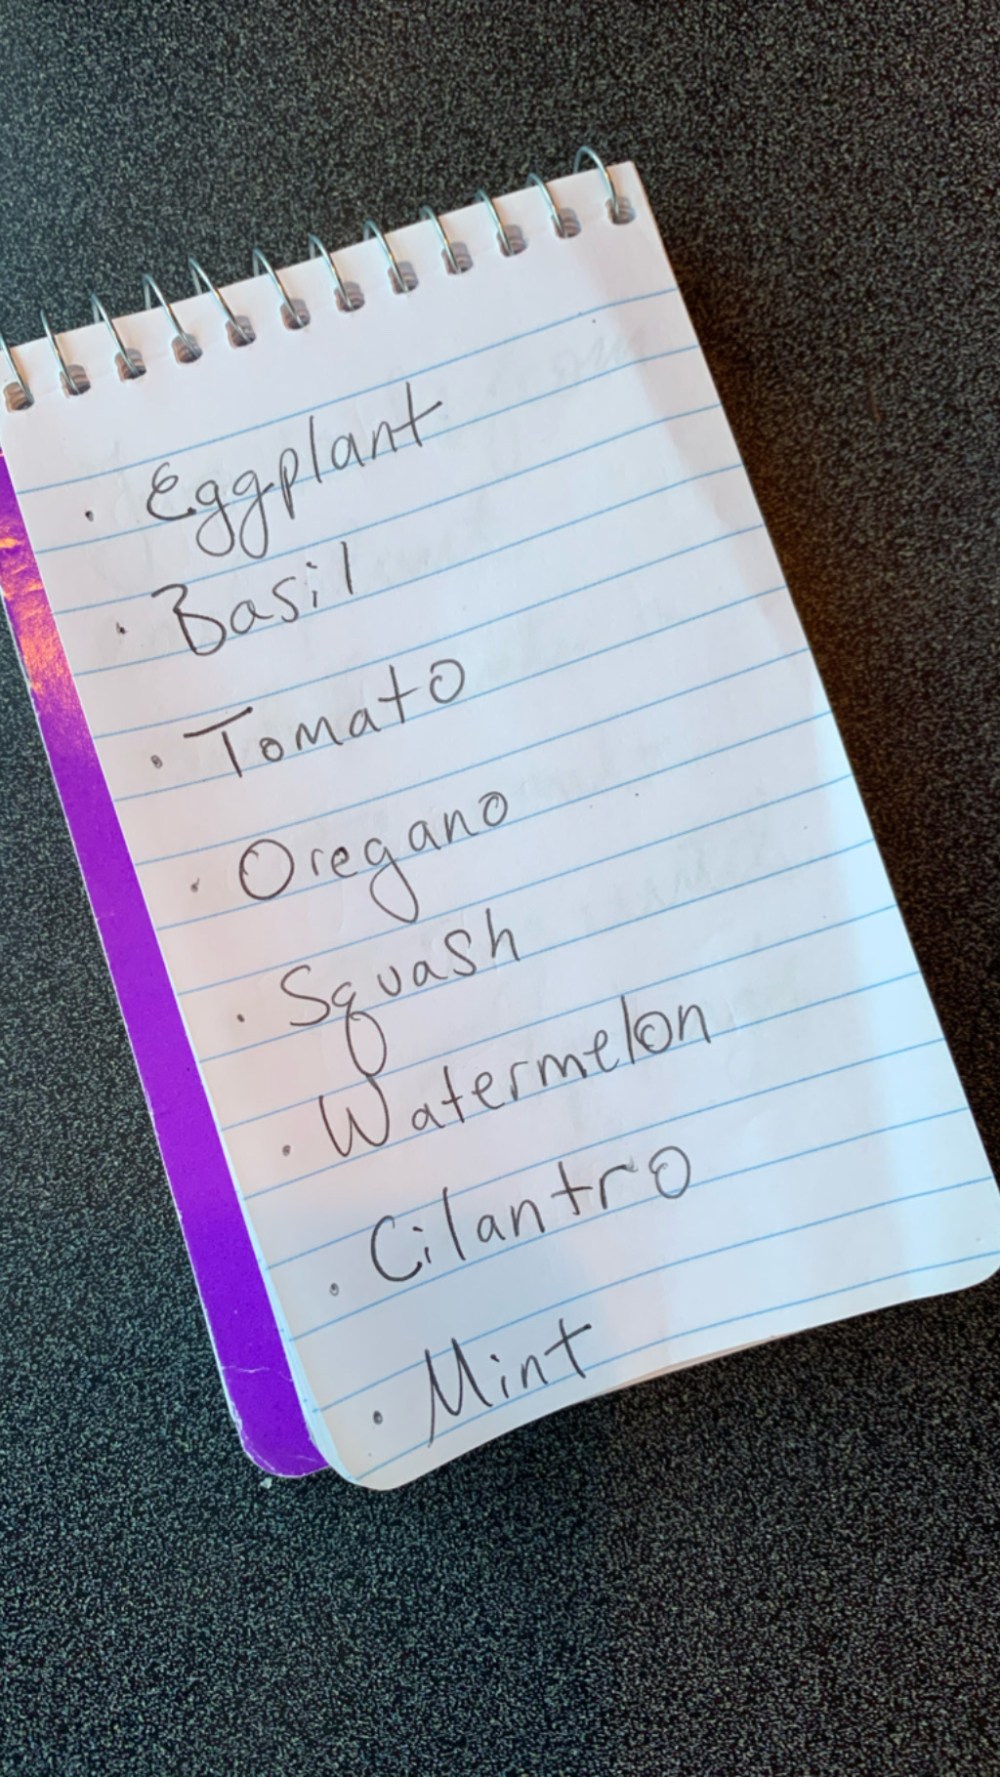 · Eggplant
· Basil
· Tomato
· Oregano
· Squash
· Watermelon
· Cilantro
· Mint